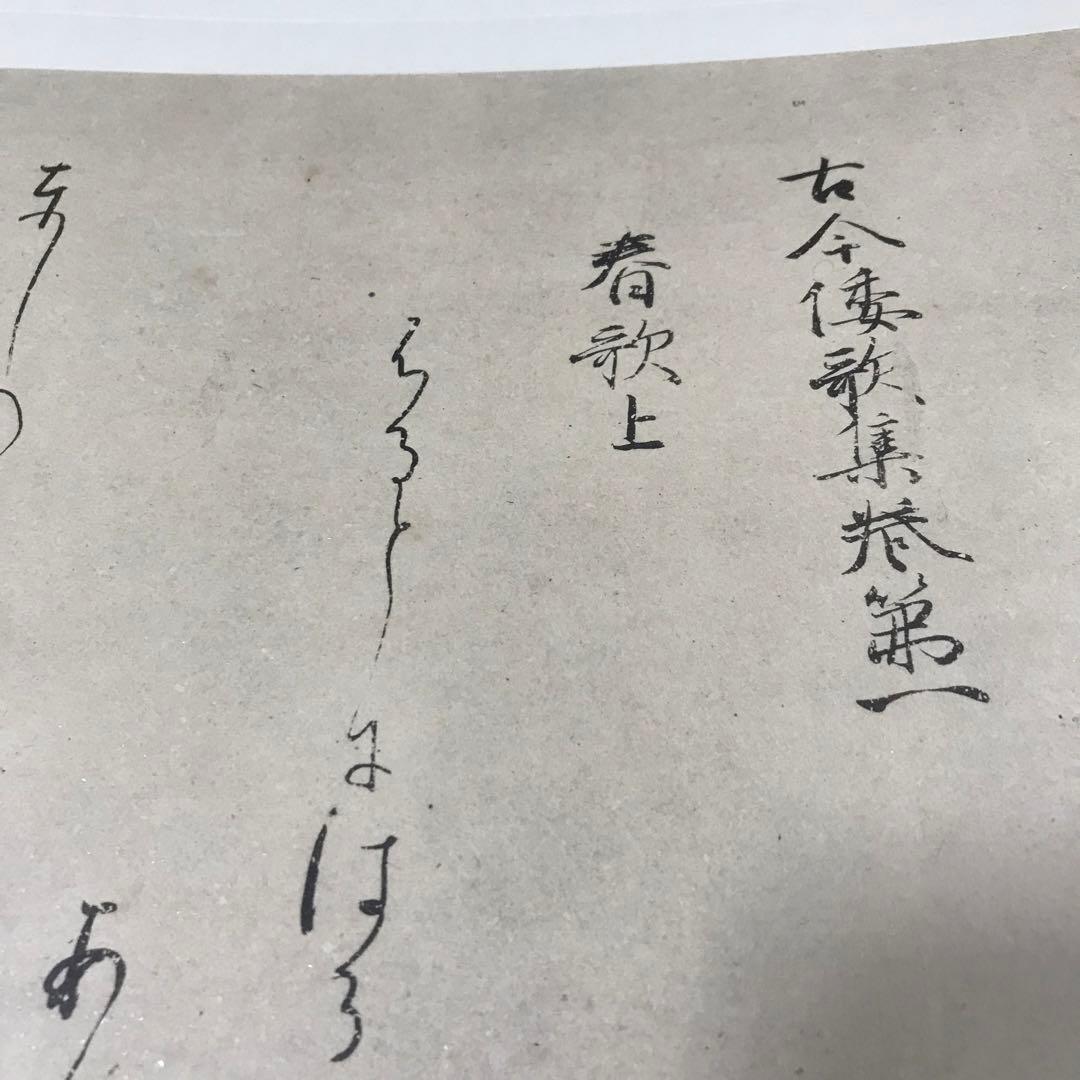 古今倭歌集巻第一
春歌上
ふるとしにはる
あ